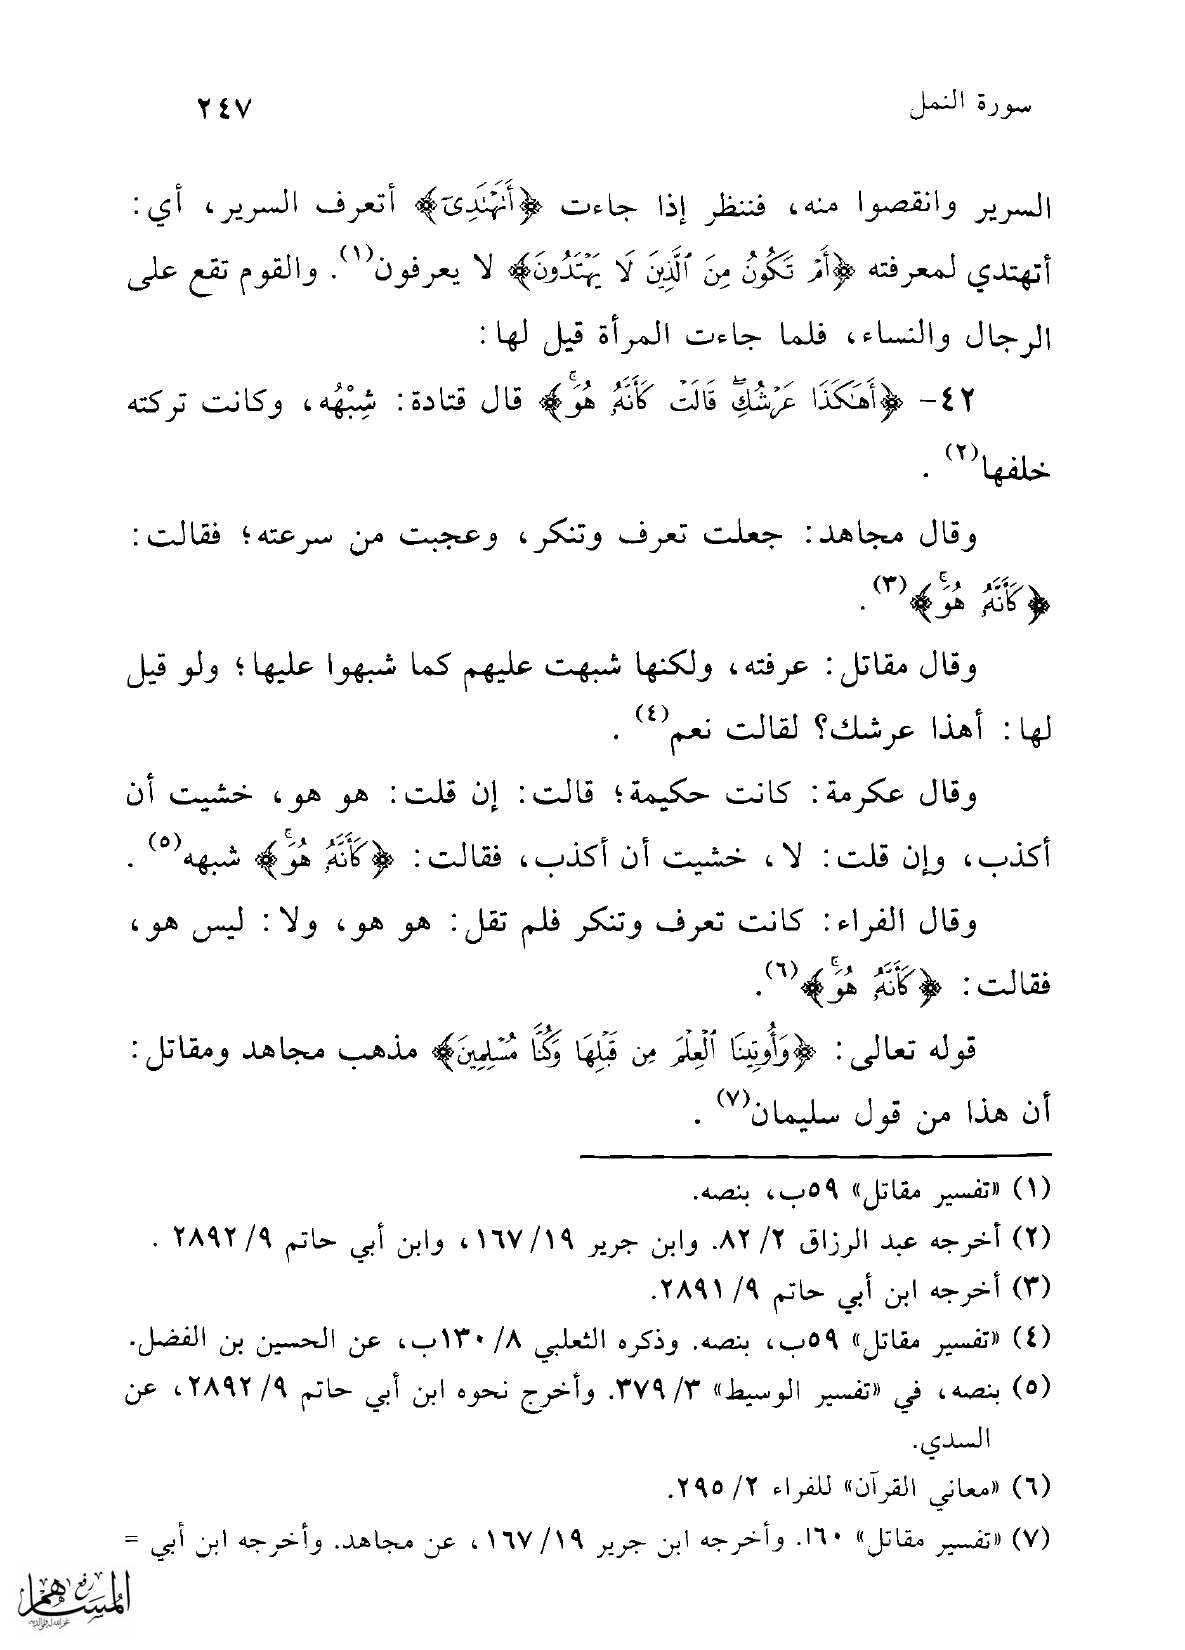 سورة النمل
٢٤٧
السرير وانقصوا منه، فننظر إذا جاءت ﴿أَتَهْتَدِي﴾ أتعرف السرير، أي:
أتهتدي لمعرفته ﴿أَمْ تَكُونُ مِنَ الَّذِينَ لَا يَهْتَدُونَ﴾ لا يعرفون(١). والقوم تقع على
الرجال والنساء، فلما جاءت المرأة قيل لها:
٤٢- ﴿أَهَٰكَذَا عَرْشُكِ ۖ قَالَتْ كَأَنَّهُ هُوَ ۚ﴾ قال قتادة: شِبْهُه، وكانت تركته
خلفها(٢) .
وقال مجاهد: جعلت تعرف وتنكر، وعجبت من سرعته؛ فقالت:
﴿كَأَنَّهُ هُوَ ۚ﴾(٣) .
وقال مقاتل: عرفته، ولكنها شبهت عليهم كما شبهوا عليها؛ ولو قيل
لها: أهذا عرشك؟ لقالت نعم(٤) .
وقال عكرمة: كانت حكيمة؛ قالت: إن قلت: هو هو، خشيت أن
أكذب، وإن قلت: لا، خشيت أن أكذب، فقالت: ﴿كَأَنَّهُ هُوَ ۚ﴾ شبهه(٥) .
وقال الفراء: كانت تعرف وتنكر فلم تقل: هو هو، ولا: ليس هو،
فقالت: ﴿كَأَنَّهُ هُوَ ۚ﴾(٦).
قوله تعالى: ﴿وَأُوتِينَا الْعِلْمَ مِن قَبْلِهَا وَكُنَّا مُسْلِمِينَ﴾ مذهب مجاهد ومقاتل:
أن هذا من قول سليمان(٧) .
(١) «تفسير مقاتل» ٥٩ب، بنصه.
(٢) أخرجه عبد الرزاق ٢/ ٨٢. وابن جرير ١٩/ ١٦٧، وابن أبي حاتم ٩/ ٢٨٩٢ .
(٣) أخرجه ابن أبي حاتم ٩/ ٢٨٩١.
(٤) «تفسير مقاتل» ٥٩ب، بنصه. وذكره الثعلبي ٨/ ١٣٠ب، عن الحسين بن الفضل.
(٥) بنصه، في «تفسير الوسيط» ٣/ ٣٧٩. وأخرج نحوه ابن أبي حاتم ٩/ ٢٨٩٢، عن
السدي.
(٦) «معاني القرآن» للفراء ٢/ ٢٩٥.
(٧) «تفسير مقاتل» ٦٠أ. وأخرجه ابن جرير ١٩/ ١٦٧، عن مجاهد. وأخرجه ابن أبي =